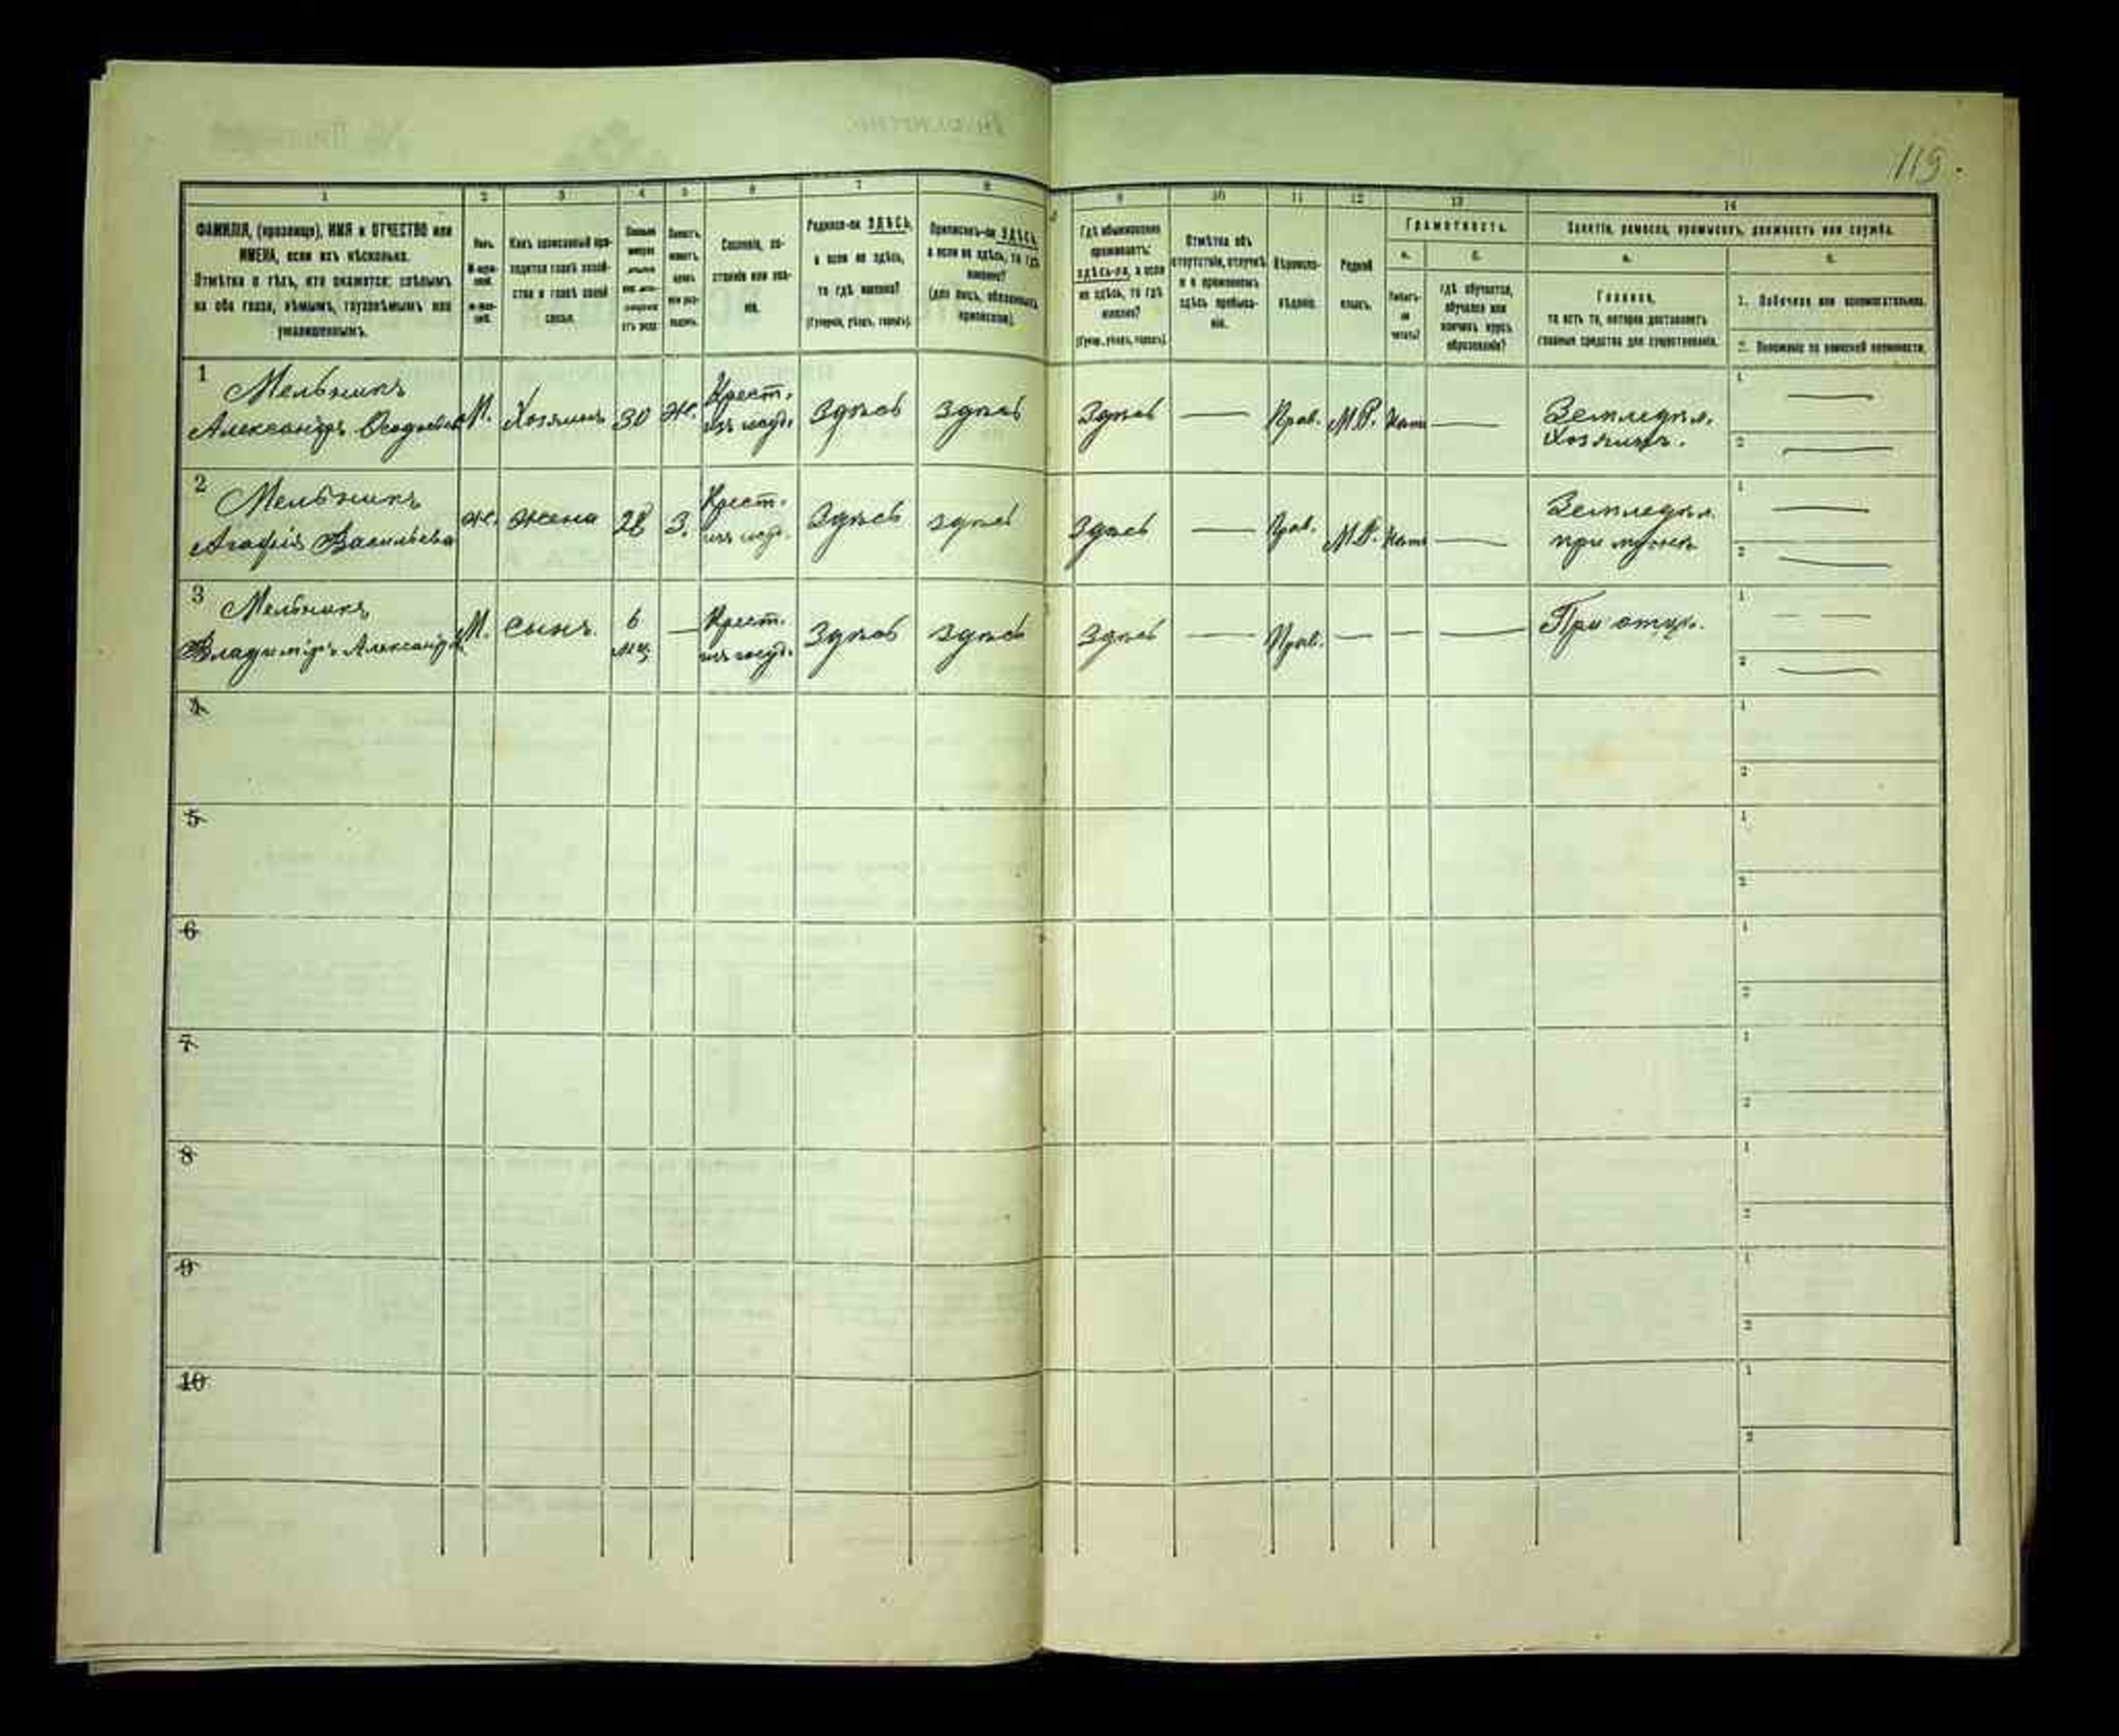 119.
1 2 3 4 5 6 7 8 9 10 11 12 13 14
ФАМИЛІЯ, (прозвище), ИМЯ и ОТЧЕСТВО или
ИМЕНА, если ихъ нѣсколько.
Отмѣтка о тѣхъ, кто окажется: слѣпымъ
на оба глаза, нѣмымъ, глухонѣмымъ или
умалишеннымъ.
Полъ.
Какъ записанный при-
ходится главѣ хозяй-
ства и главѣ своей
семьи.
Сословіе, со-
стояніе или зва-
ніе.
Родился-ли ЗДѢСЬ,
а если не здѣсь,
то гдѣ именно?
(Губернія, уѣздъ, городъ).
Приписанъ-ли ЗДѢСЬ,
а если не здѣсь, то гдѣ
именно?
(для лицъ, обязанныхъ
припискою).
Гдѣ обыкновенно
проживаетъ:
здѣсь-ли, а если
не здѣсь, то гдѣ
именно?
(Губер., уѣздъ, городъ).
Отмѣтка объ
отсутствіи, отлучкѣ
и о временномъ
здѣсь пребыва-
ніи.
Вѣроиспо-
вѣданіе.
Родной
языкъ.
Грамотность.
а. б.
Умѣетъ-
ли
читать?
гдѣ обучается,
обучался или
кончилъ курсъ
образованія?
Занятіе, ремесло, промыселъ, должность или служба.
а. б.
Главное,
то есть то, которое доставляетъ
главныя средства для существованія.
1. Побочное или вспомогательное.
2. Положеніе по воинской повинности.
1 Мельникъ
Александръ М. Хозяинъ 30 Ж. Крест. Здѣсь Здѣсь Здѣсь — Прав. М.Р. Нѣтъ — Земледѣл. 1 —
Хозяинъ. 2 —
2 Мельникъ
Агафія Васильева ж. жена 28 З. Крест. Здѣсь здѣсь Здѣсь — Прав. М.Р. Нѣтъ — Земледѣл. 1 —
при мужѣ 2 —
3 Мельникъ
Владиміръ М. сынъ. 6 мц. — Крест. изъ госуд. Здѣсь здѣсь Здѣсь — Прав. — — — При отцѣ. 1 — —
2 —
4 1
2
5 1
2
6 1
2
7 1
2
8 1
2
9 1
2
10 1
2